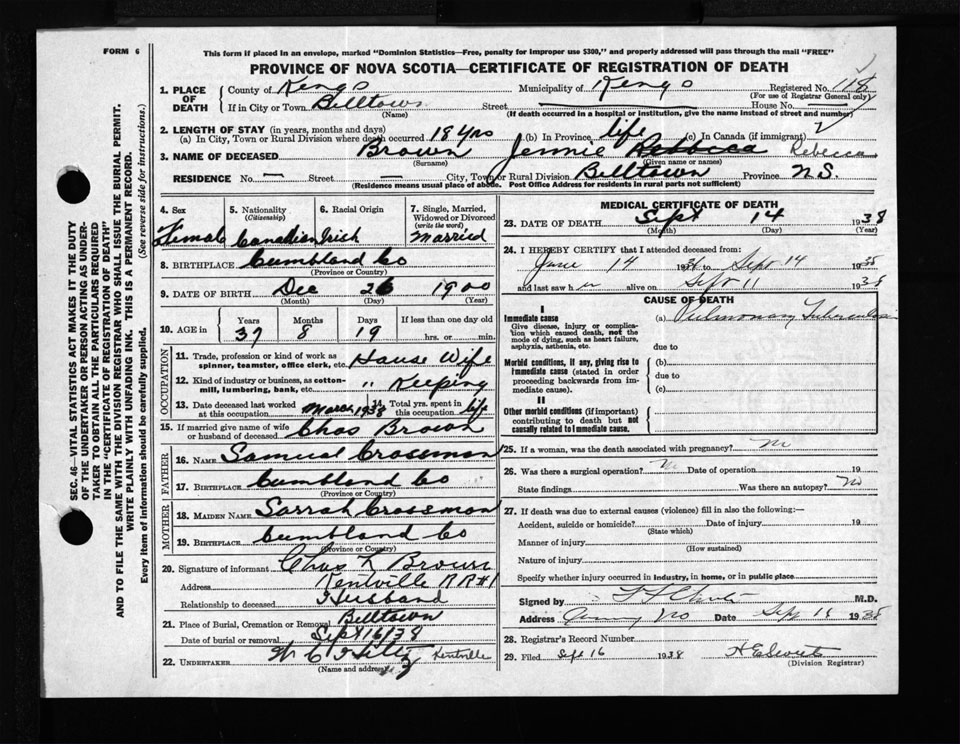 FORM 6
This form if placed in an envelope, marked "Dominion Statistics—Free, penalty for improper use $300," and properly addressed will pass through the mail "FREE"
PROVINCE OF NOVA SCOTIA—CERTIFICATE OF REGISTRATION OF DEATH
SEC. 46—VITAL STATISTICS ACT MAKES IT THE DUTY
OF THE UNDERTAKER OR PERSON ACTING AS UNDER-
TAKER TO OBTAIN ALL THE PARTICULARS REQUIRED
IN THE "CERTIFICATE OF REGISTRATION OF DEATH"
AND TO FILE THE SAME WITH THE DIVISION REGISTRAR WHO SHALL ISSUE THE BURIAL PERMIT.
WRITE PLAINLY WITH UNFADING INK. THIS IS A PERMANENT RECORD.
Every item of information should be carefully supplied. (See reverse side for instructions.)
1. PLACE OF DEATH County of Kings Municipality of Kings Registered No. 118
(For use of Registrar General only)
If in City or Town Billtown Street House No.
(Name) (If death occurred in a hospital or institution, give the name instead of street and number)
2. LENGTH OF STAY (in years, months and days)
(a) In City, Town or Rural Division where death occurred 18 yrs (b) In Province life (c) In Canada (if immigrant)
3. NAME OF DECEASED Brown Jennie Rebbcca Rebecca
(Surname) (Given name or names)
RESIDENCE No. — Street — City, Town or Rural Division Billtown Province N.S.
(Residence means usual place of abode. Post Office Address for residents in rural parts not sufficient)
4. Sex Female
5. Nationality (Citizenship) Canadian
6. Racial Origin Irish
7. Single, Married, Widowed or Divorced (write the word) Married
8. BIRTHPLACE Cumbland Co
(Province or Country)
9. DATE OF BIRTH Dec 26 1900
(Month) (Day) (Year)
10. AGE in Years Months Days If less than one day old
37 8 19 hrs. or min.
OCCUPATION
11. Trade, profession or kind of work as spinner, teamster, office clerk, etc. House Wife
12. Kind of industry or business, as cotton-mill, lumbering, bank, etc. " Keeping
13. Date deceased last worked at this occupation March 1938 14. Total yrs. spent in this occupation life
15. If married give name of wife or husband of deceased Chas Brown
FATHER
16. NAME Samual Crossman
17. BIRTHPLACE Cumbland Co
(Province or Country)
MOTHER
18. MAIDEN NAME Sarrah Crossman
19. BIRTHPLACE Cumbland Co
(Province or Country)
20. Signature of informant Chas K Brown
Address Kentville RR#1
Relationship to deceased Husband
21. Place of Burial, Cremation or Removal Billtown
Date of burial or removal Sept 16/38
22. UNDERTAKER Kentville
(Name and address)
MEDICAL CERTIFICATE OF DEATH
23. DATE OF DEATH Sept 14 1938
(Month) (Day) (Year)
24. I HEREBY CERTIFY that I attended deceased from:
June 14 193 to Sept 14 1938
and last saw her alive on Sept 11 1938
CAUSE OF DEATH
I
Immediate cause (a) Pulmonary Tuberculosis
Give disease, injury or complication which caused death, not the mode of dying, such as heart failure, asphyxia, asthenia, etc.
due to
Morbid conditions, if any, giving rise to immediate cause (stated in order proceeding backwards from immediate cause). (b)
due to
(c)
II
Other morbid conditions (if important) contributing to death but not causally related to immediate cause.
25. If a woman, was the death associated with pregnancy? no
26. Was there a surgical operation? No Date of operation 19
State findings Was there an autopsy? no
27. If death was due to external causes (violence) fill in also the following:—
Accident, suicide or homicide? Date of injury 19
(State which)
Manner of injury
(How sustained)
Nature of injury
Specify whether injury occurred in industry, in home, or in public place
Signed by M.D.
Address Date Sept 1938
28. Registrar's Record Number
29. Filed Sept 16 1938
(Division Registrar)